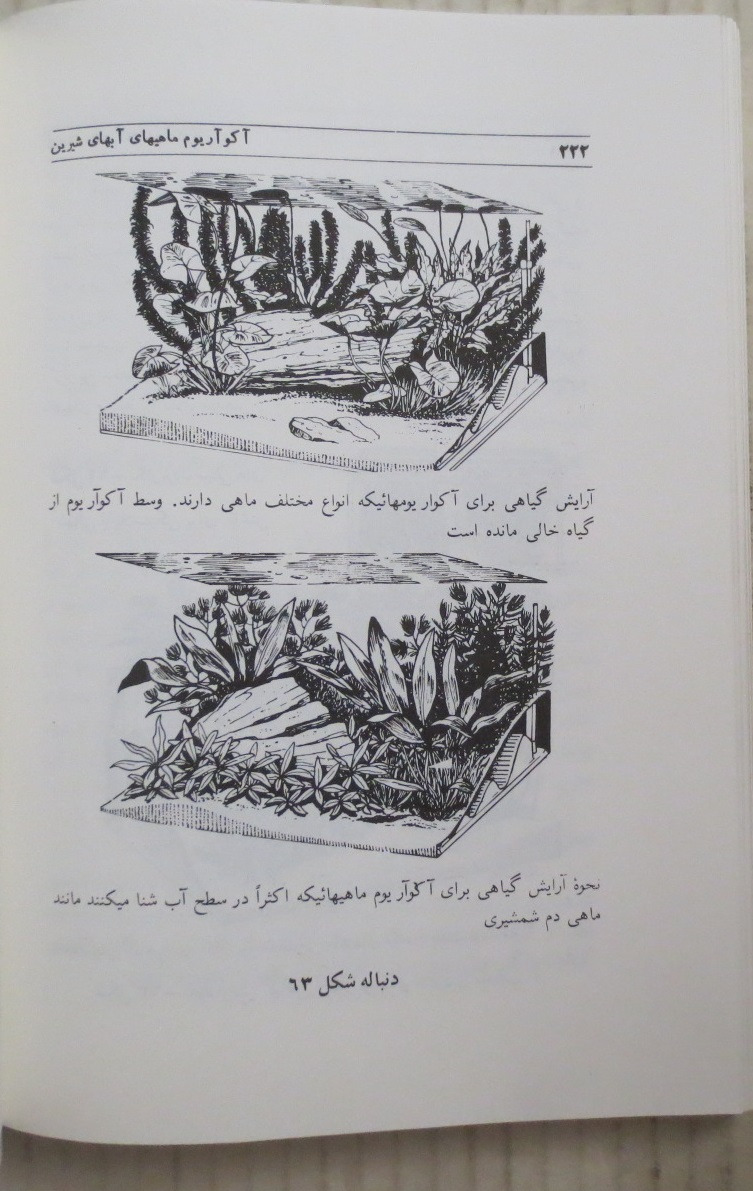 ۲۲۲ آکوآریوم ماهیهای آبهای شیرین
آرایش گیاهی برای آکواریومهائیکه انواع مختلف ماهی دارند. وسط آکوآریوم از
گیاه خالی مانده است
نحوۀ آرایش گیاهی برای آکوآریوم ماهیهائیکه اکثراً در سطح آب شنا میکنند مانند
ماهی دم شمشیری
دنباله شکل ۶۳